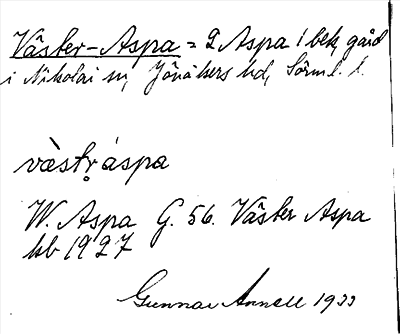 Väster-Aspa = 2 Aspa 1 bek, gård
i Nikolai sn, Jönåkers hd, Sörml. l.
västr̥áspa
W. Aspa G. 56. Väster Aspa
kb 1927
Gunnar Annell 1933